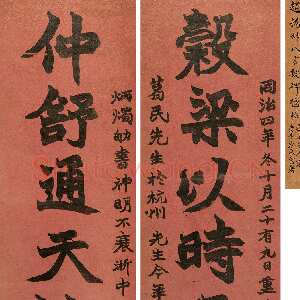 同治四年冬十月二十有九日重
穀梁以時
葛民先生於杭州 先生今年
炳燭劬書神明不衰浙中
仲舒通天